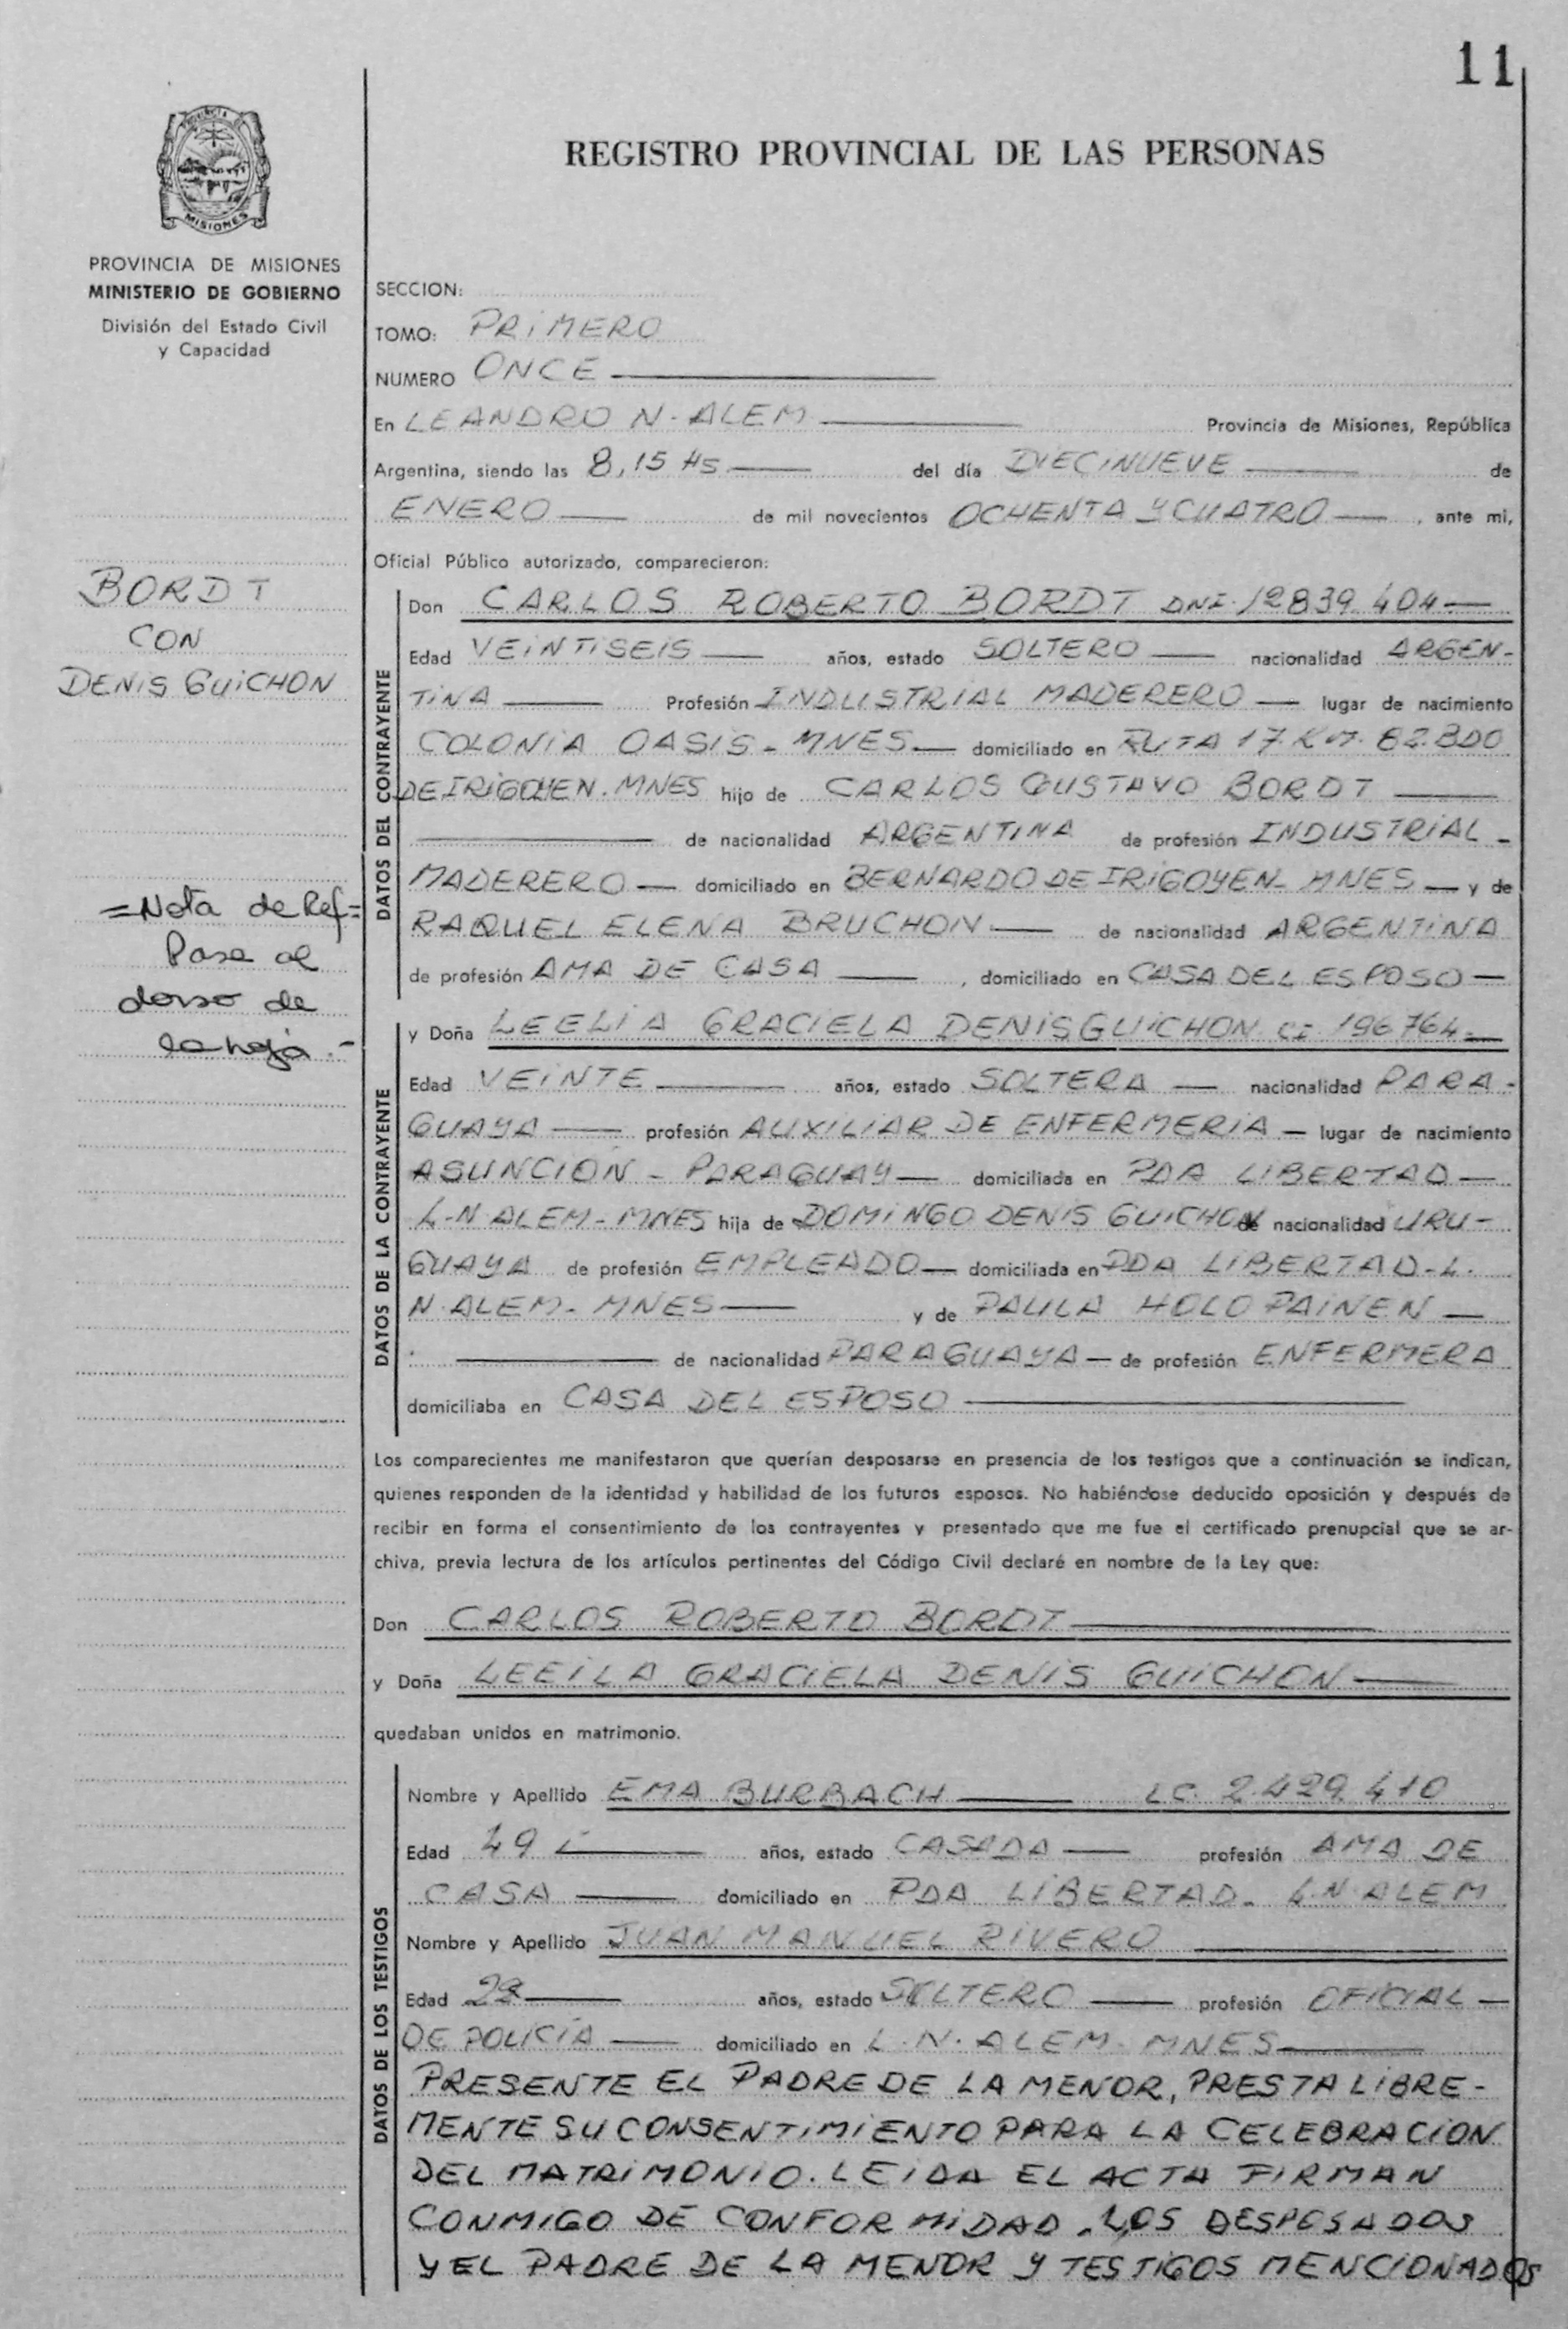 11
REGISTRO PROVINCIAL DE LAS PERSONAS
MISIONES
PROVINCIA DE MISIONES
MINISTERIO DE GOBIERNO
División del Estado Civil
y Capacidad
BORDT
CON
DENIS GUICHON
=Nota de Ref=
Pasa al
dorso de
la hoja.-
SECCION:
TOMO: PRIMERO
NUMERO ONCE
En LEANDRO N. ALEM Provincia de Misiones, República
Argentina, siendo las 8,15 HS del día DIECINUEVE de
ENERO de mil novecientos OCHENTA Y CUATRO, ante mi,
Oficial Público autorizado, comparecieron:
DATOS DEL CONTRAYENTE
Don CARLOS ROBERTO BORDT DNI. 12839.404
Edad VEINTISEIS años, estado SOLTERO nacionalidad ARGEN-
TINA Profesión INDUSTRIAL MADERERO lugar de nacimiento
COLONIA OASIS - MNES domiciliado en RUTA 17. KM.
DE IRIGOYEN. MNES hijo de CARLOS GUSTAVO BORDT
de nacionalidad ARGENTINA de profesión INDUSTRIAL -
MADERERO domiciliado en BERNARDO DE IRIGOYEN - MNES y de
RAQUEL ELENA BRUCHON de nacionalidad ARGENTINA
de profesión AMA DE CASA, domiciliado en CASA DEL ESPOSO
DATOS DE LA CONTRAYENTE
y Doña LEELIA GRACIELA DENIS GUICHON CI 196764
Edad VEINTE años, estado SOLTERA nacionalidad PARA-
GUAYA profesión AUXILIAR DE ENFERMERIA lugar de nacimiento
ASUNCION - PARAGUAY domiciliada en PDA LIBERTAD
L-N ALEM - MNES hija de DOMINGO DENIS GUICHON de nacionalidad URU-
GUAYA de profesión EMPLEADO domiciliada en PDA LIBERTAD-L.
N. ALEM - MNES y de PAULA HOLOPAINEN
de nacionalidad PARAGUAYA de profesión ENFERMERA
domiciliaba en CASA DEL ESPOSO
Los comparecientes me manifestaron que querían desposarse en presencia de los testigos que a continuación se indican,
quienes responden de la identidad y habilidad de los futuros esposos. No habiéndose deducido oposición y después de
recibir en forma el consentimiento de los contrayentes y presentado que me fue el certificado prenupcial que se ar-
chiva, previa lectura de los artículos pertinentes del Código Civil declaré en nombre de la Ley que:
Don CARLOS ROBERTO BORDT
y Doña LEEILA GRACIELA DENIS GUICHON
quedaban unidos en matrimonio.
DATOS DE LOS TESTIGOS
Nombre y Apellido EMA BURBACH LC. 2.429.410
Edad 49 años, estado CASADA profesión AMA DE
CASA domiciliado en PDA LIBERTAD - L.N. ALEM
Nombre y Apellido JUAN MANUEL RIVERO
Edad años, estado SOLTERO profesión OFICIAL
DE POLICIA domiciliado en L.N. ALEM - MNES
PRESENTE EL PADRE DE LA MENOR, PRESTA LIBRE-
MENTE SU CONSENTIMIENTO PARA LA CELEBRACION
DEL MATRIMONIO. LEIDA EL ACTA FIRMAN
CONMIGO DE CONFORMIDAD. LOS DESPOSADOS
Y EL PADRE DE LA MENOR Y TESTIGOS MENCIONADOS